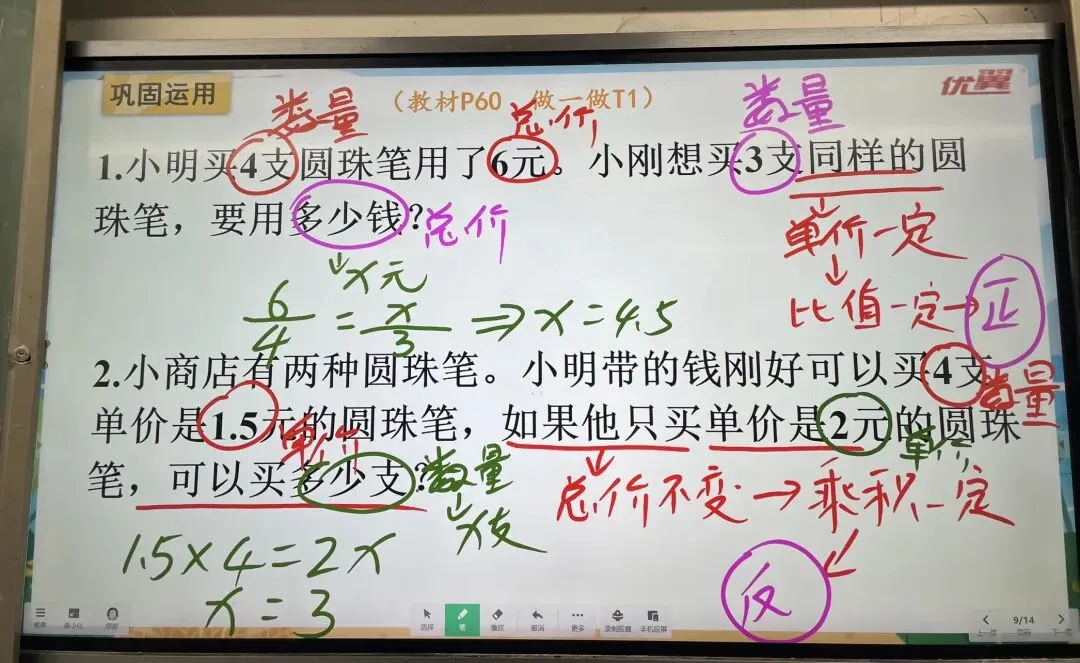 巩固运用
(教材P60 做一做T1)
优翼
数量
总价
数量
1.小明买4支圆珠笔用了6元。小刚想买3支同样的圆
珠笔，要用多少钱?
总价
单价一定
x元
6/4=x/3⇒x=4.5
比值一定→正
2.小商店有两种圆珠笔。小明带的钱刚好可以买4支
数量
单价是1.5元的圆珠笔，如果他只买单价是2元的圆珠
单价
单价
笔，可以买多少支?
数量
总价不变→乘积一定
x支
1.5×4=2x
反
x=3
菜单
最小化
选择
笔
橡皮
撤消
更多
录制胶囊
手机投屏
上一页
9/14
页码
下一页